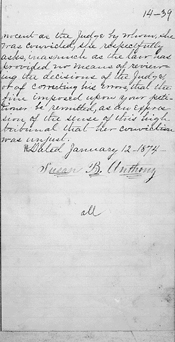 14-39
nocent as the Judge by whom she
was convicted, she respectfully
asks, inasmuch as the law has
provided no means of review-
ing the decisions of the Judge,
or of correcting his errors, that the
fine imposed upon your peti-
tioner be remitted, as an expres-
sion of the sense of this high
tribunal that her conviction
was unjust.
Dated January 12. 1874
Susan B. Anthony